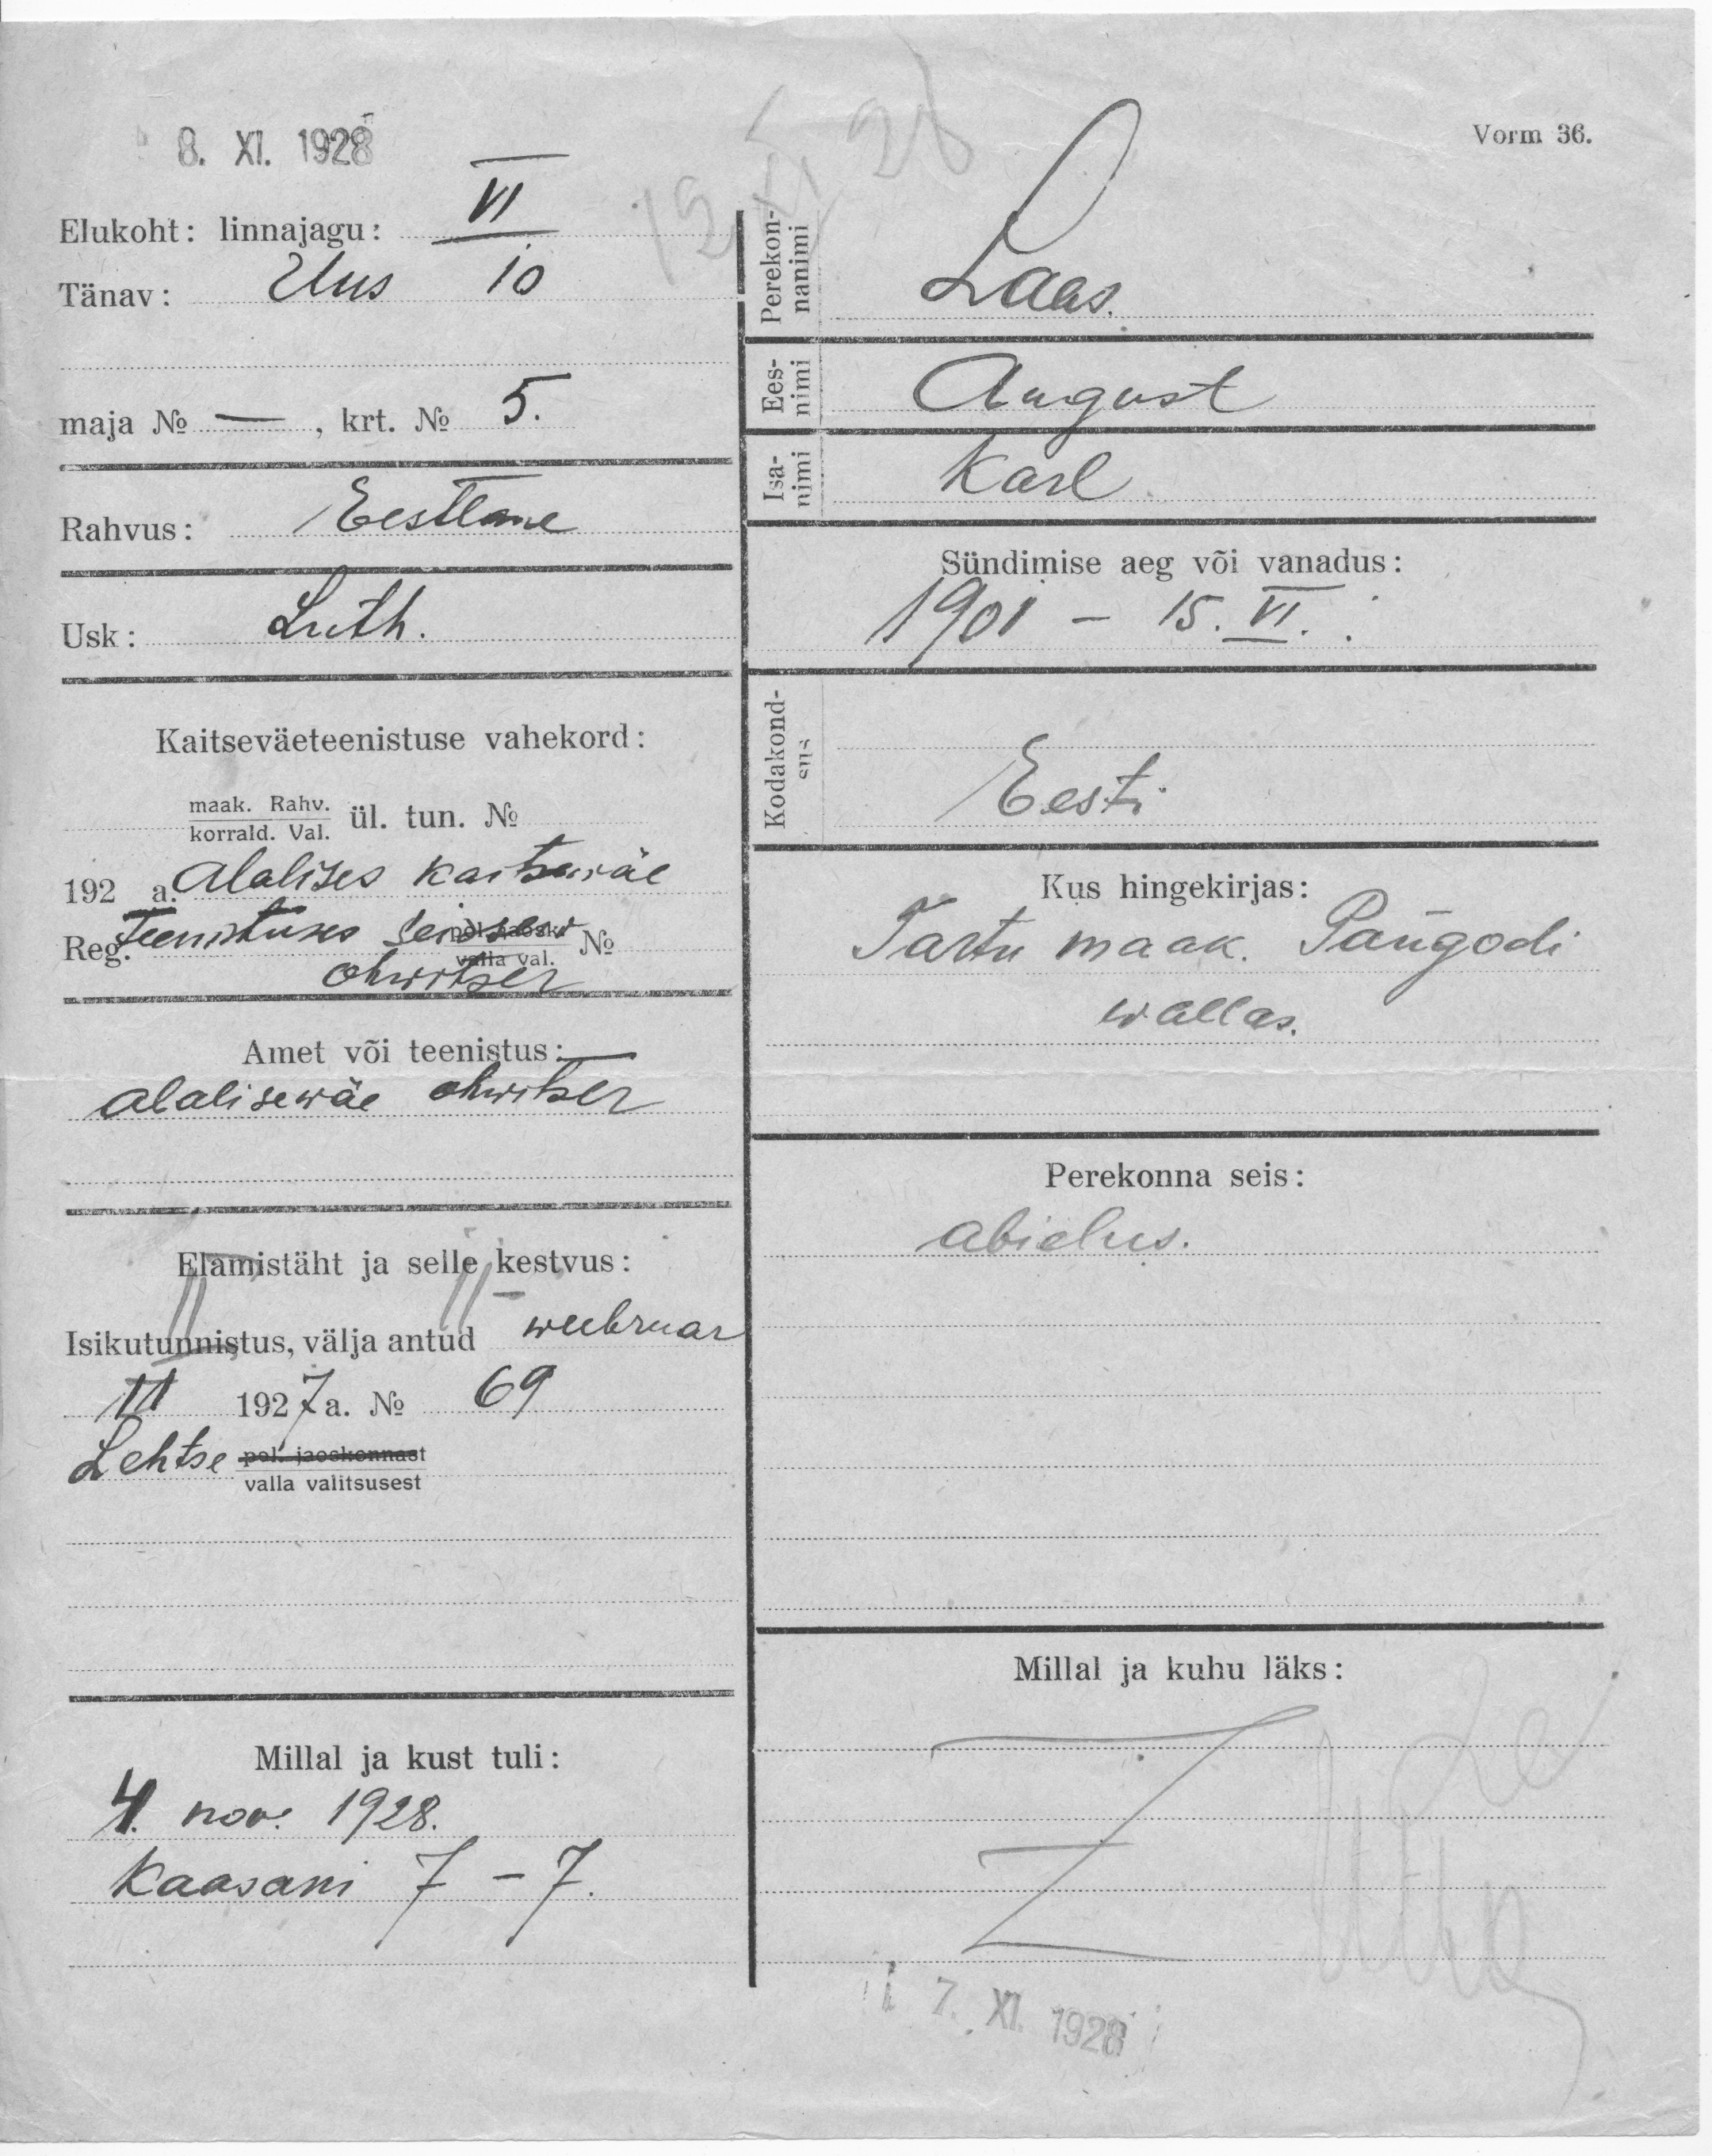 8. XI. 1928
Vorm 36.
Elukoht: linnajagu: VI
Tänav: Uus 10
maja № — , krt. № 5.
Rahvus: Eestlane
Usk: Luth.
Kaitseväeteenistuse vahekord:
maak. Rahv.
korrald. Val. ül. tun. №
192 a. Alalises kaitsewäe
Reg. teenistuses seisew pol. jaosk. №
valla val.
ohwitser
Amet või teenistus:
alalisewäe ohwitser
Elamistäht ja selle kestvus:
Isikutunnistus, välja antud weebruar
1927 a. № 69
Lehtse pol. jaoskonnast
valla valitsusest
Millal ja kust tuli:
4. nov. 1928.
Kaasani 7 – 7.
Perekon-
nanimi Laas.
Ees-
nimi August
Isa-
nimi Karl
Sündimise aeg või vanadus:
1901 – 15. VI.
Kodakond-
sus Eesti
Kus hingekirjas:
Tartu maak. Pangodi
wallas.
Perekonna seis:
abielus.
Millal ja kuhu läks:
7. XI. 1928